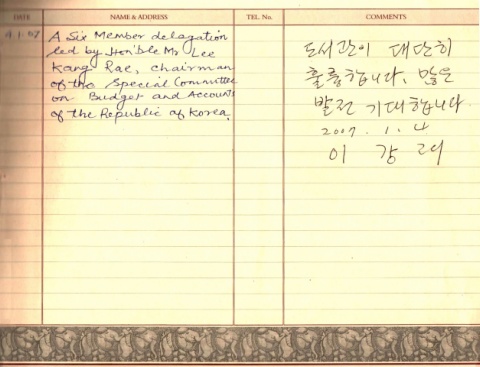 DATE NAME & ADDRESS TEL. No. COMMENTS
4.1.07
A Six Member delagation
led by Hon'ble Mr Lee
Kang Rae, chairman
of the Special Committee
on Budget and Accounts
of the Republic of Korea.
도서관이 대단히
훌륭합니다. 많은
발전 기대합니다
2007. 1. 4
이 강 래